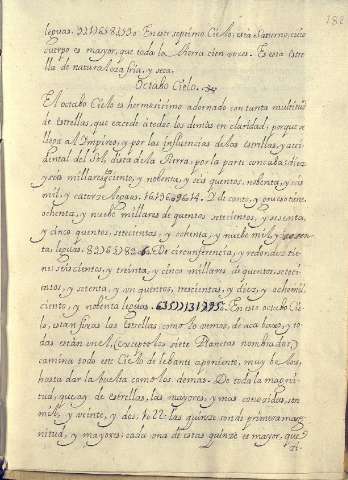 182
leguas. En este septimo Cielo, esta Saturno, cuio
cuerpo es mayor, que toda la tierra cien veces. Es esta Estre
lla de naturaleza fria, y seca.
Octabo Cielo.
El octabo Cielo es hermosissimo adornado con tanta multitud
de Estrellas, que excede à todos los demas en claridad; porque a
llega al Impireo, y por las influencias de las estrellas, y acci
dental del Sol, dista de la tierra por la parte concaba; diez
y seis millares, ciento, y nobenta, y seis quentos, nobenta, y seis
mil, y catorze leguas. De canto, y cuerpo tiene
ochenta, y nuebe millares de quentos setecientos, y sesenta,
y cinco quentos, setecientos, y ochenta, y nuebe mil, y
ta, leguas. De circunferencia, y redondez tie
ne seiscientos, y treinta, y cinco millares de quentos, setec
ientos, y setenta, y un quentos, trescientos, y diez, y ocho mil
ciento, y nobenta leguas. En este octabo Cie
lo, estan fixas las Estrellas, como lo vemos, de aca baxo, y to
das estan en el, (excepto los siete Planetas nombrados,)
camina todo este Cielo de lebante a poniente, muy beloz,
hasta dar la buelta como los demas. De toda la magni
tud, que ay de estrellas, las mayores, y mas conocidas, son
mil, y veinte, y dos, 1022. las quinze son de primera mag
nitud, y mayores: cada una de estas quinze es mayor, que